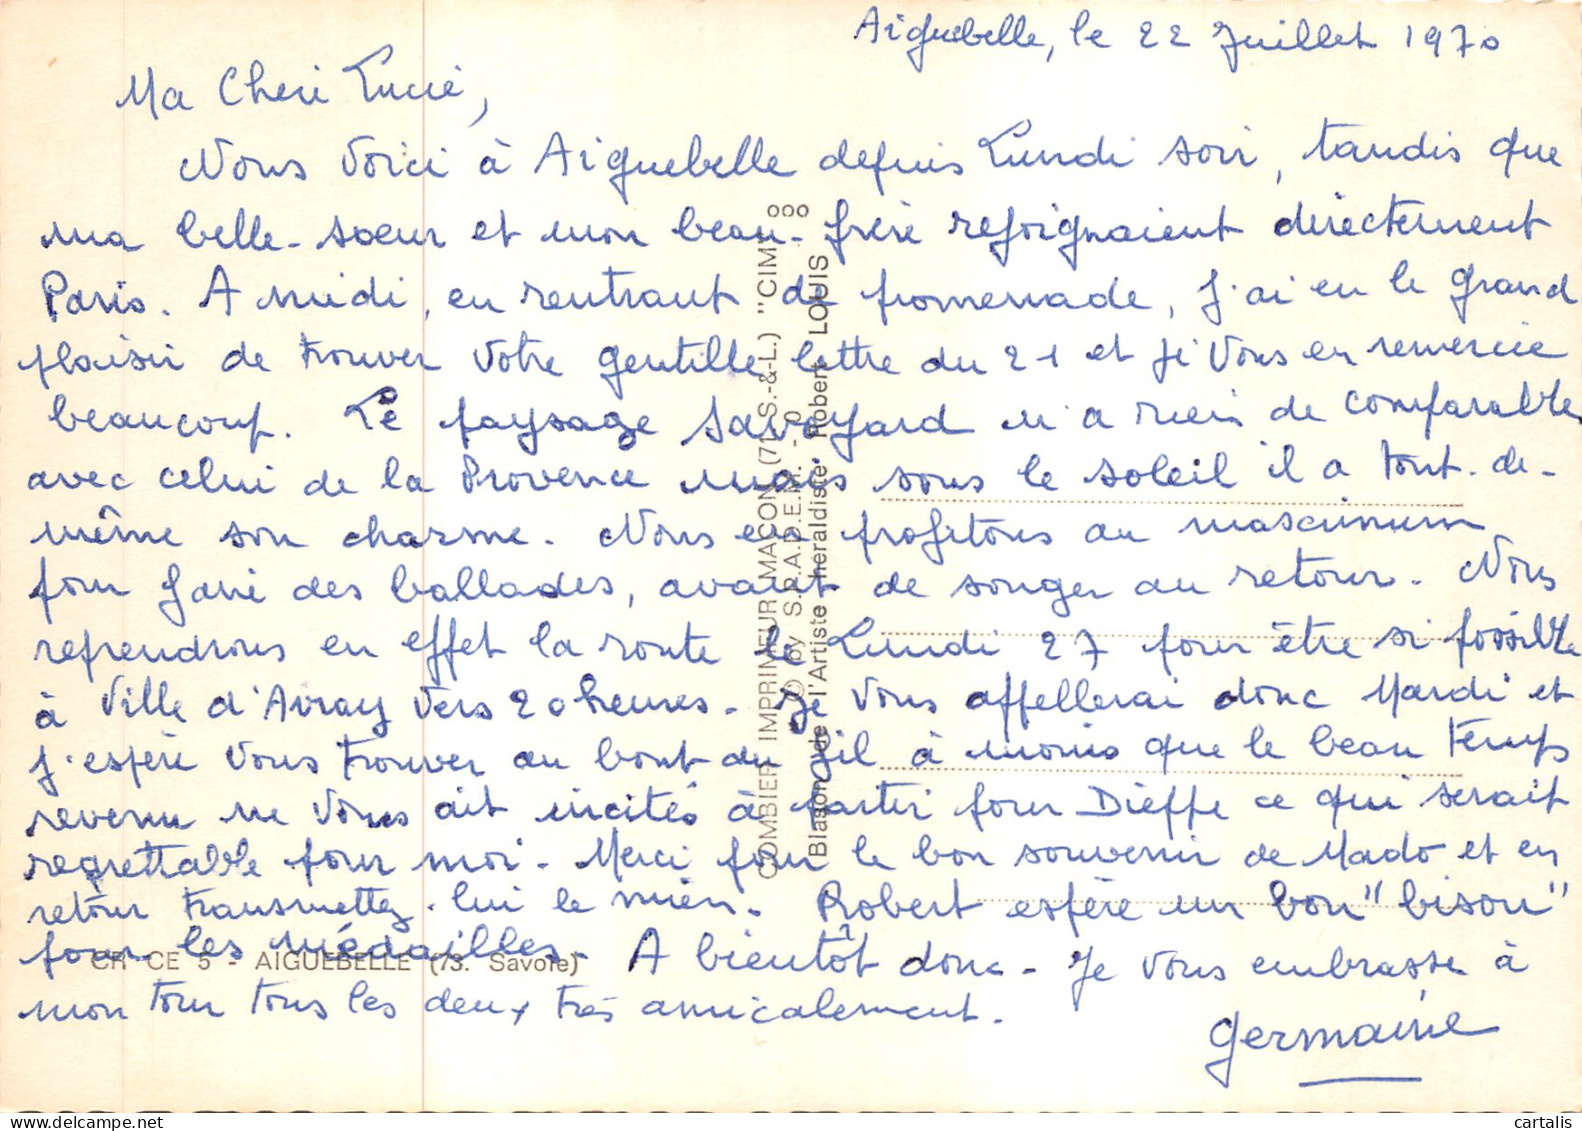 Aiguebelle, le 22 Juillet 1970
Ma Cheri Lucie,
Nous voici à Aiguebelle depuis Lundi soir, tandis que
ma belle-soeur et mon beau-frère rejoignaient directement
Paris. A midi, en rentrant de promenade, j'ai eu le grand
plaisir de trouver votre gentille lettre du 21 et je vous en remercie
beaucoup. Le paysage savoyard n'a rien de comparable
avec celui de la Provence mais sous le soleil il a tout-de-
même son charme. Nous en profitons au mascimum
pour faire des ballades, avant de songer au retour. Nous
reprendrons en effet la route le Lundi 27 pour être si possible
à Ville d'Avray vers 20 heures. Je vous appellerai donc Mardi et
j'espère vous trouver au bout du fil à moins que le beau temps
revenu ne vous ait incités à partir pour Dieppe ce qui serait
regrettable pour moi. Merci pour le bon souvenir de Mado et en
retour transmettez-lui le mien. Robert espère un bon "bison"
pour les médailles. A bientôt donc. Je vous embrasse à
mon tour tous les deux très amicalement.
Germaine
COMBIER IMPRIMEUR MACON (71. S.-&-L.) "CIM"
© by S.P.A.D.E.M. -
Blason de l'Artiste héraldiste Robert LOUIS
CR CE 5 - AIGUEBELLE (73. Savoie)
cartalis